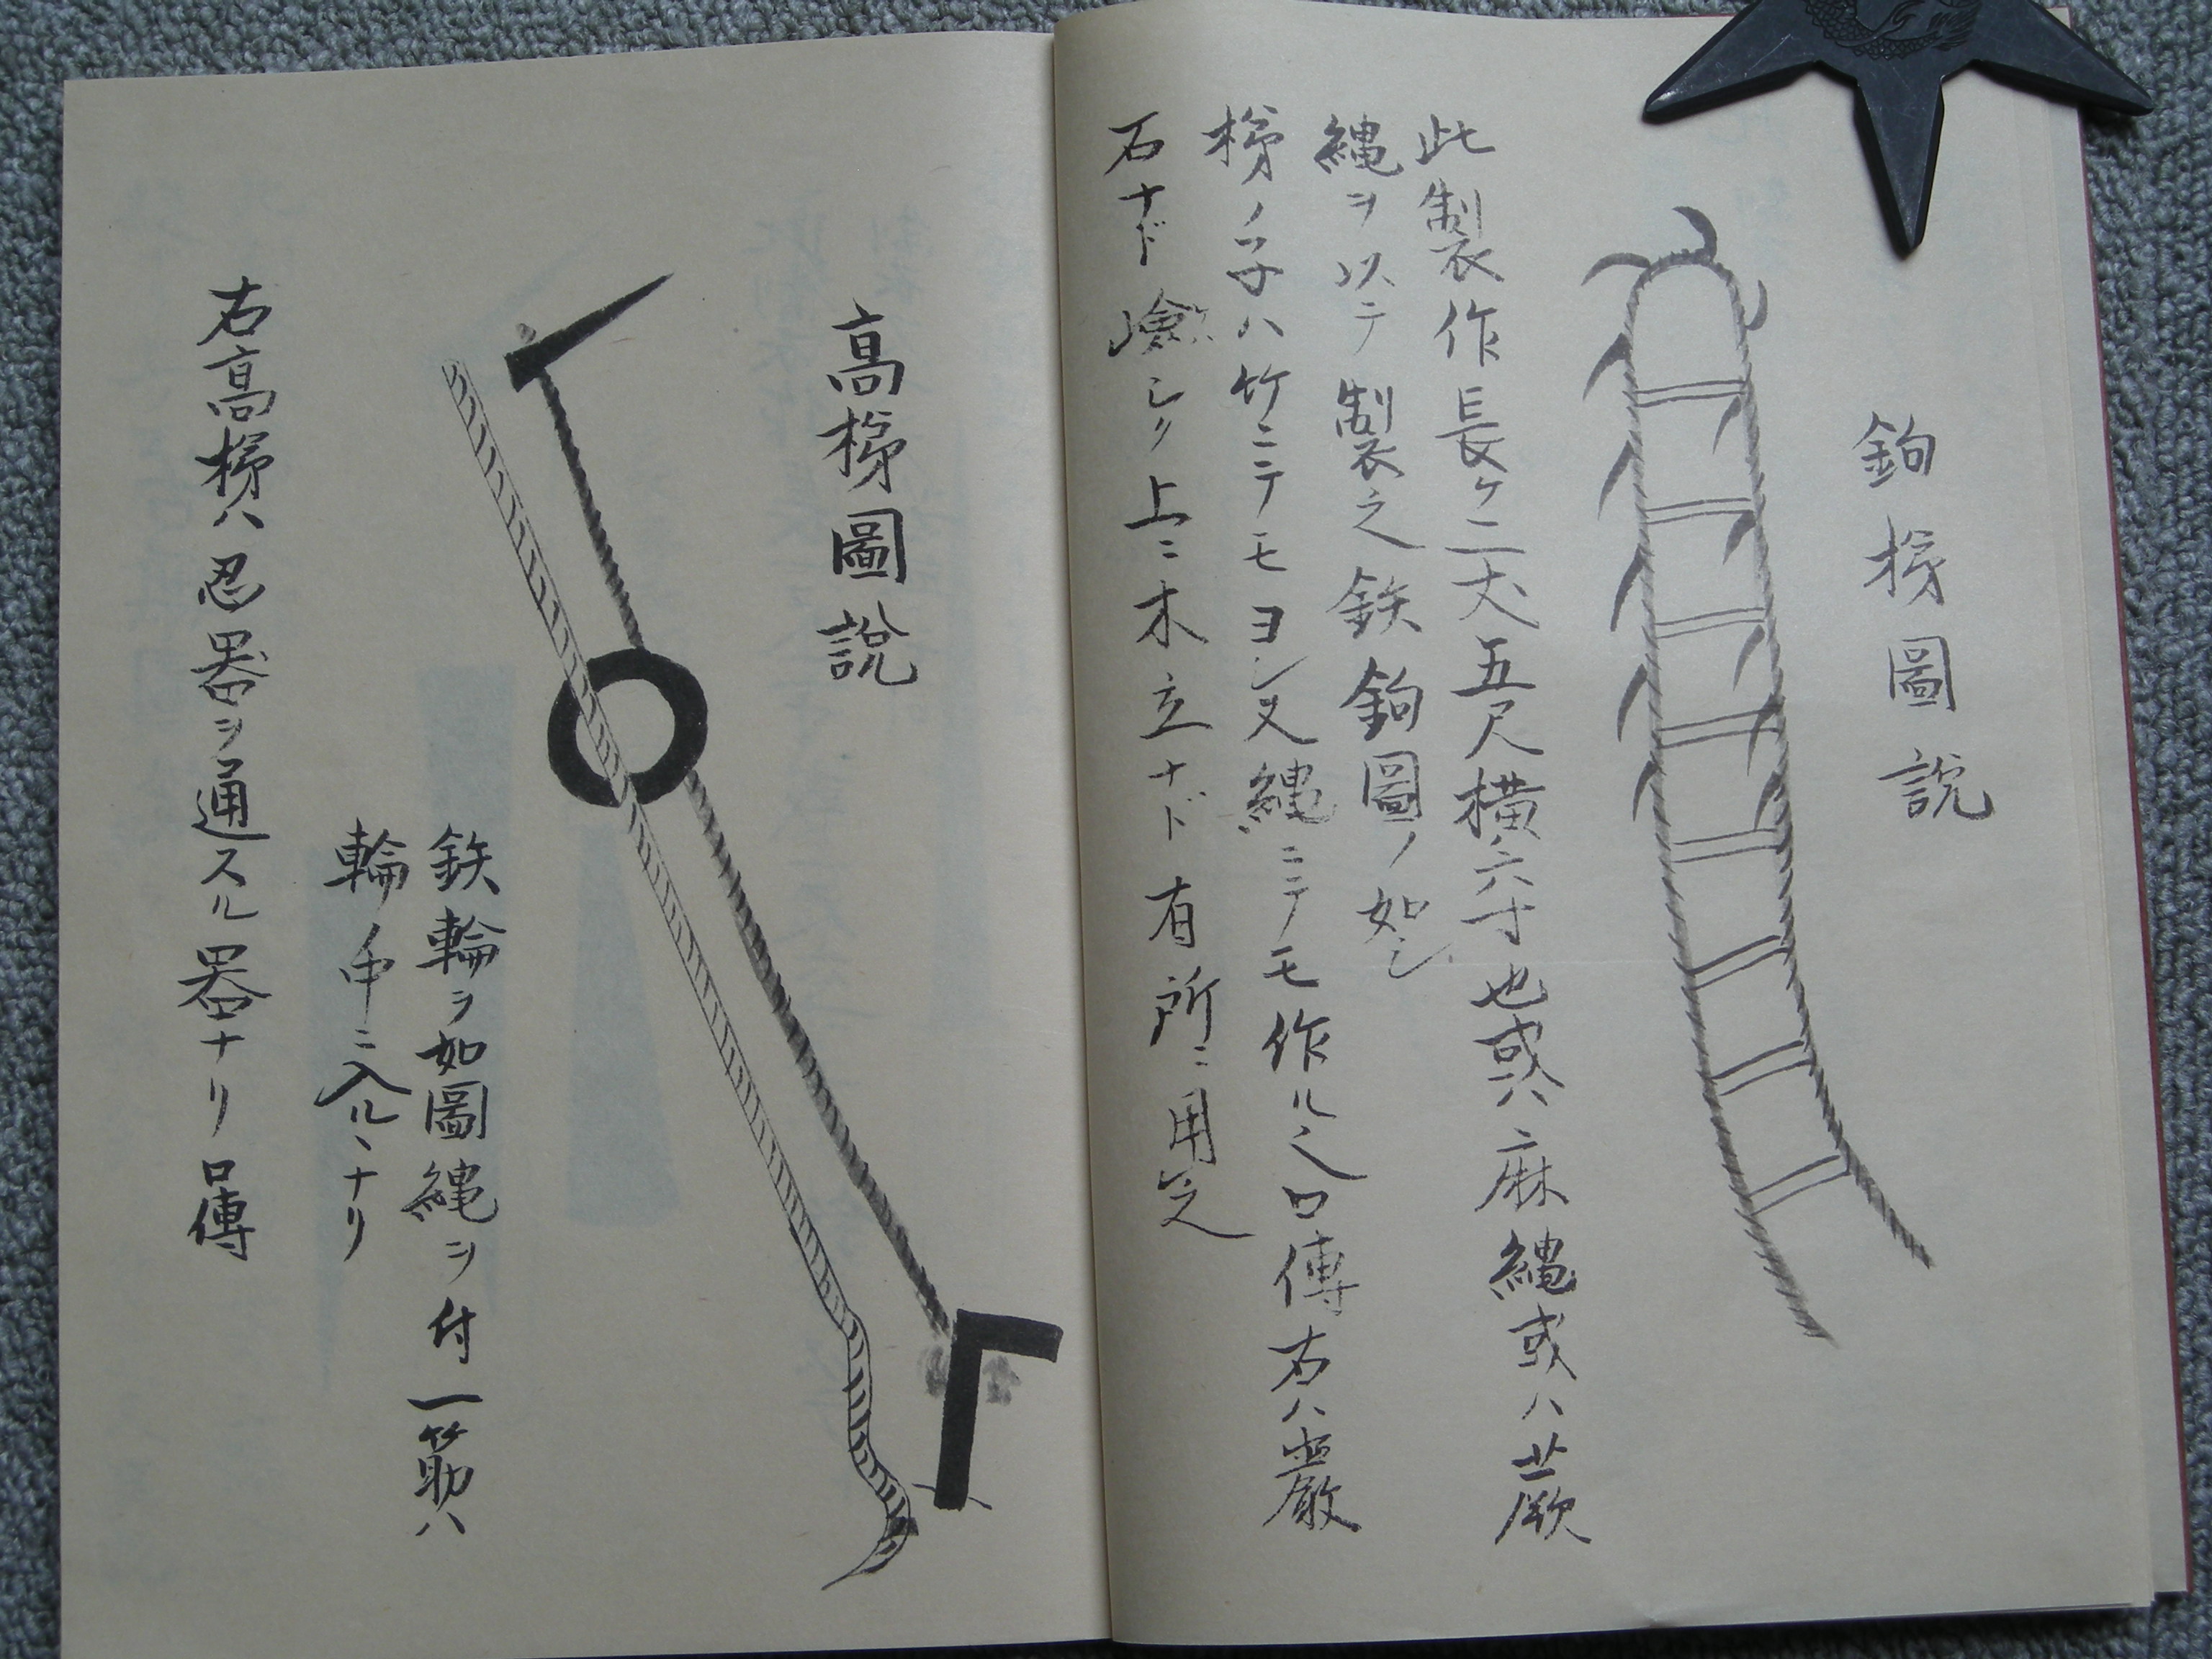 鉤梯圖説
此製作長ケ二丈五尺横六寸也或ハ麻縄或ハ蕨
縄ヲ以テ製之鉄鉤圖ノ如シ
梯ノ子ハ竹ニテモヨシ又縄ニテモ作ル之口傳右ハ巖
石ナド嶮シク上ニ木立ナド有所ニ用之
高梯圖説
鉄輪ヲ如圖縄ヲ付一筋ハ
輪ノ中ニ入ルヽナリ
右高梯ハ忍器ヲ通スル器ナリ口傳